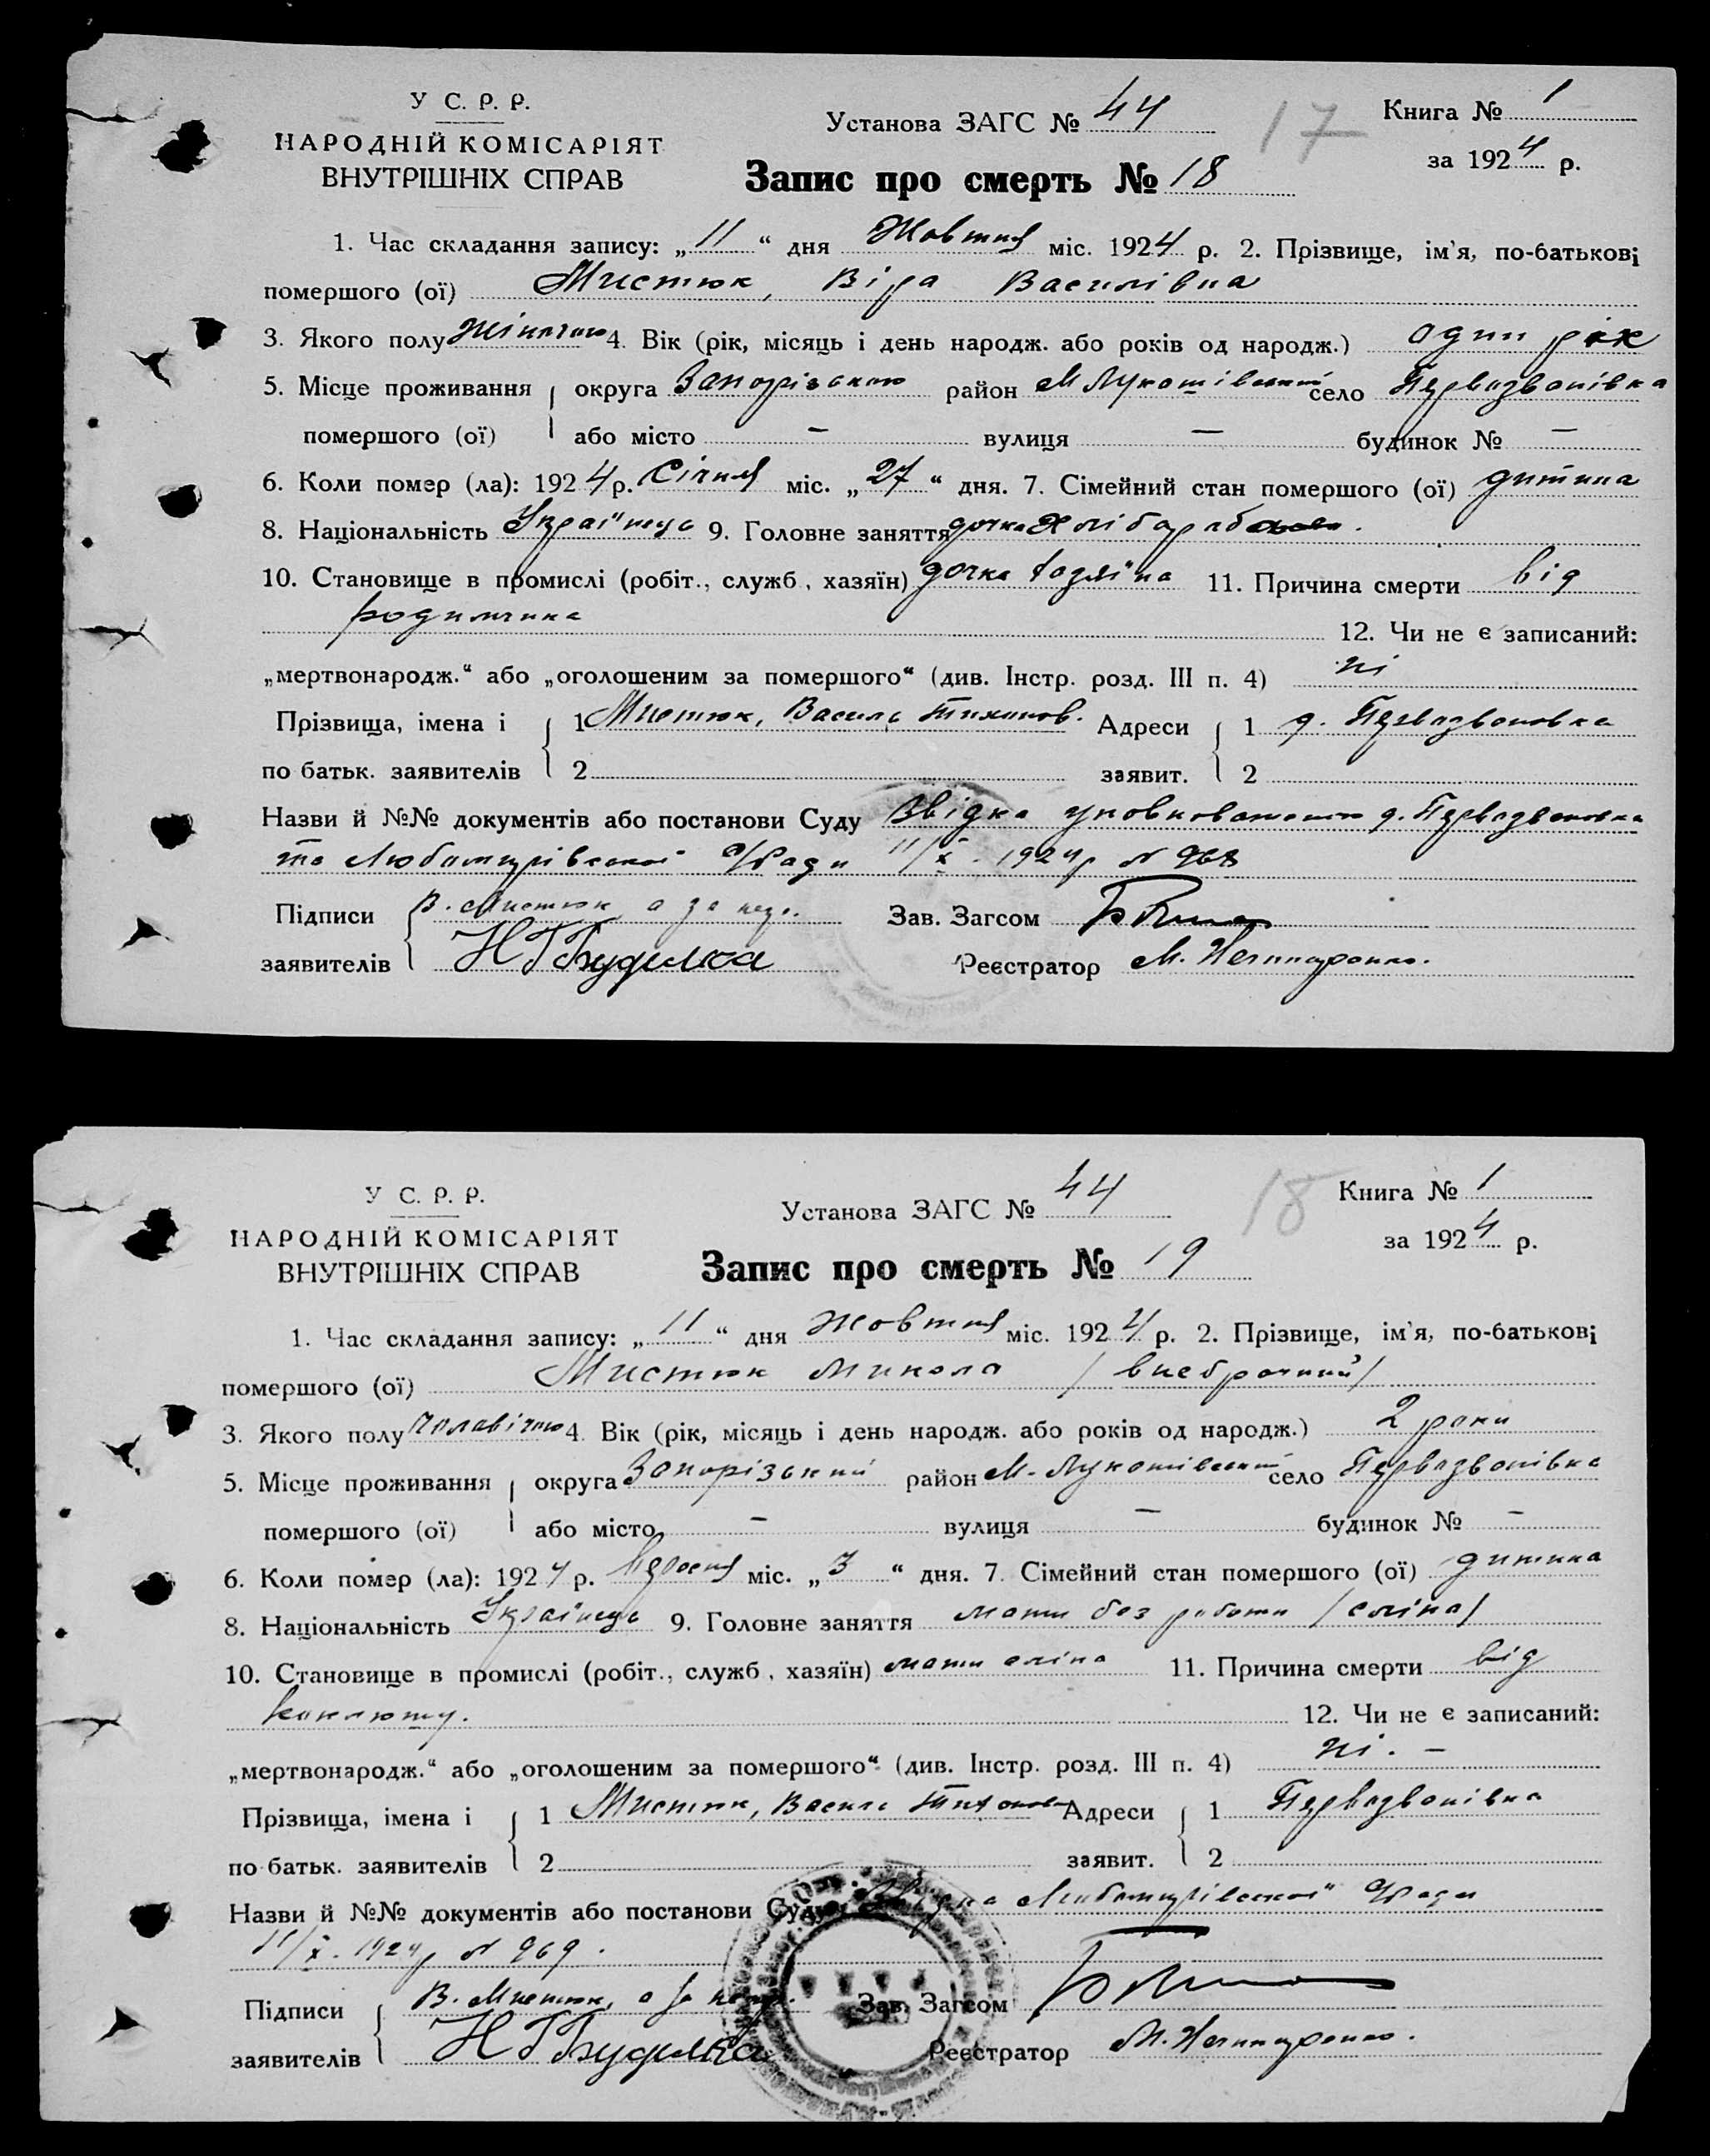 У С. Р. Р.
НАРОДНІЙ КОМІСАРІЯТ
ВНУТРІШНІХ СПРАВ
Установа ЗАГС № 44
17
Книга № 1
за 1924 р.
Запис про смерть № 18
1. Час складання запису: „11“ дня Жовтня міс. 1924 р. 2. Прізвище, ім'я, по-батькові
помершого (ої) Мистюк, Віра Василівна
3. Якого полу жіночого 4. Вік (рік, місяць і день народж. або років од народж.) один рік
5. Місце проживання округа Запорізькою район М Лукашівський село Первозванівка
помершого (ої) або місто – вулиця – будинок № –
6. Коли помер (ла): 1924 р. Січня міс. „27“ дня. 7. Сімейний стан помершого (ої) дитина
8. Національність Українець 9. Головне заняття дочка Хлібороба
10. Становище в промислі (робіт., служб., хазяїн) дочка хазяїна 11. Причина смерти від
родимчика 12. Чи не є записаний:
„мертвонародж.“ або „оголошеним за помершого“ (див. Інстр. розд. III п. 4) ні
Прізвища, імена і 1 Мистюк, Василь Тихонов. Адреси 1 д. Первозвановка
по батьк. заявителів 2 заявит. 2
Назви й №№ документів або постанови Суду Звідка уповноваженого д. Первозвановка
та Любимурівської С/Ради 11/X. 1924 р № 968
Підписи В. Мистюк, а за нег. Зав. Загсом
заявителів Н Г Будилка Реєстратор М. Нечипуренко.
У С. Р. Р.
НАРОДНІЙ КОМІСАРІЯТ
ВНУТРІШНІХ СПРАВ
Установа ЗАГС № 44
18
Книга № 1
за 1924 р.
Запис про смерть № 19
1. Час складання запису: „11“ дня Жовтня міс. 1924 р. 2. Прізвище, ім'я, по-батькові
помершого (ої) Мистюк Микола /внебрачний/
3. Якого полу чоловічого 4. Вік (рік, місяць і день народж. або років од народж.) 2 роки
5. Місце проживання округа Запорізький район М-Лукашівський село Первозванівка
помершого (ої) або місто – вулиця – будинок № –
6. Коли помер (ла): 1924 р. Вересня міс. „3“ дня. 7. Сімейний стан помершого (ої) дитина
8. Національність Українець 9. Головне заняття мати без роботи /сліпа/
10. Становище в промислі (робіт., служб., хазяїн) мати сліпа 11. Причина смерти від
коклюшу. 12. Чи не є записаний:
„мертвонародж.“ або „оголошеним за помершого“ (див. Інстр. розд. III п. 4) ні. –
Прізвища, імена і 1 Мистюк, Василь Тихонов Адреси 1 Первозванівка
по батьк. заявителів 2 заявит. 2
Назви й №№ документів або постанови Суду Звідка Любимурівської С/Ради
11/X. 1924 р № 969.
Підписи В. Мистюк, а за Зав. Загсом
заявителів Н Г Будилка Реєстратор М. Нечипуренко.